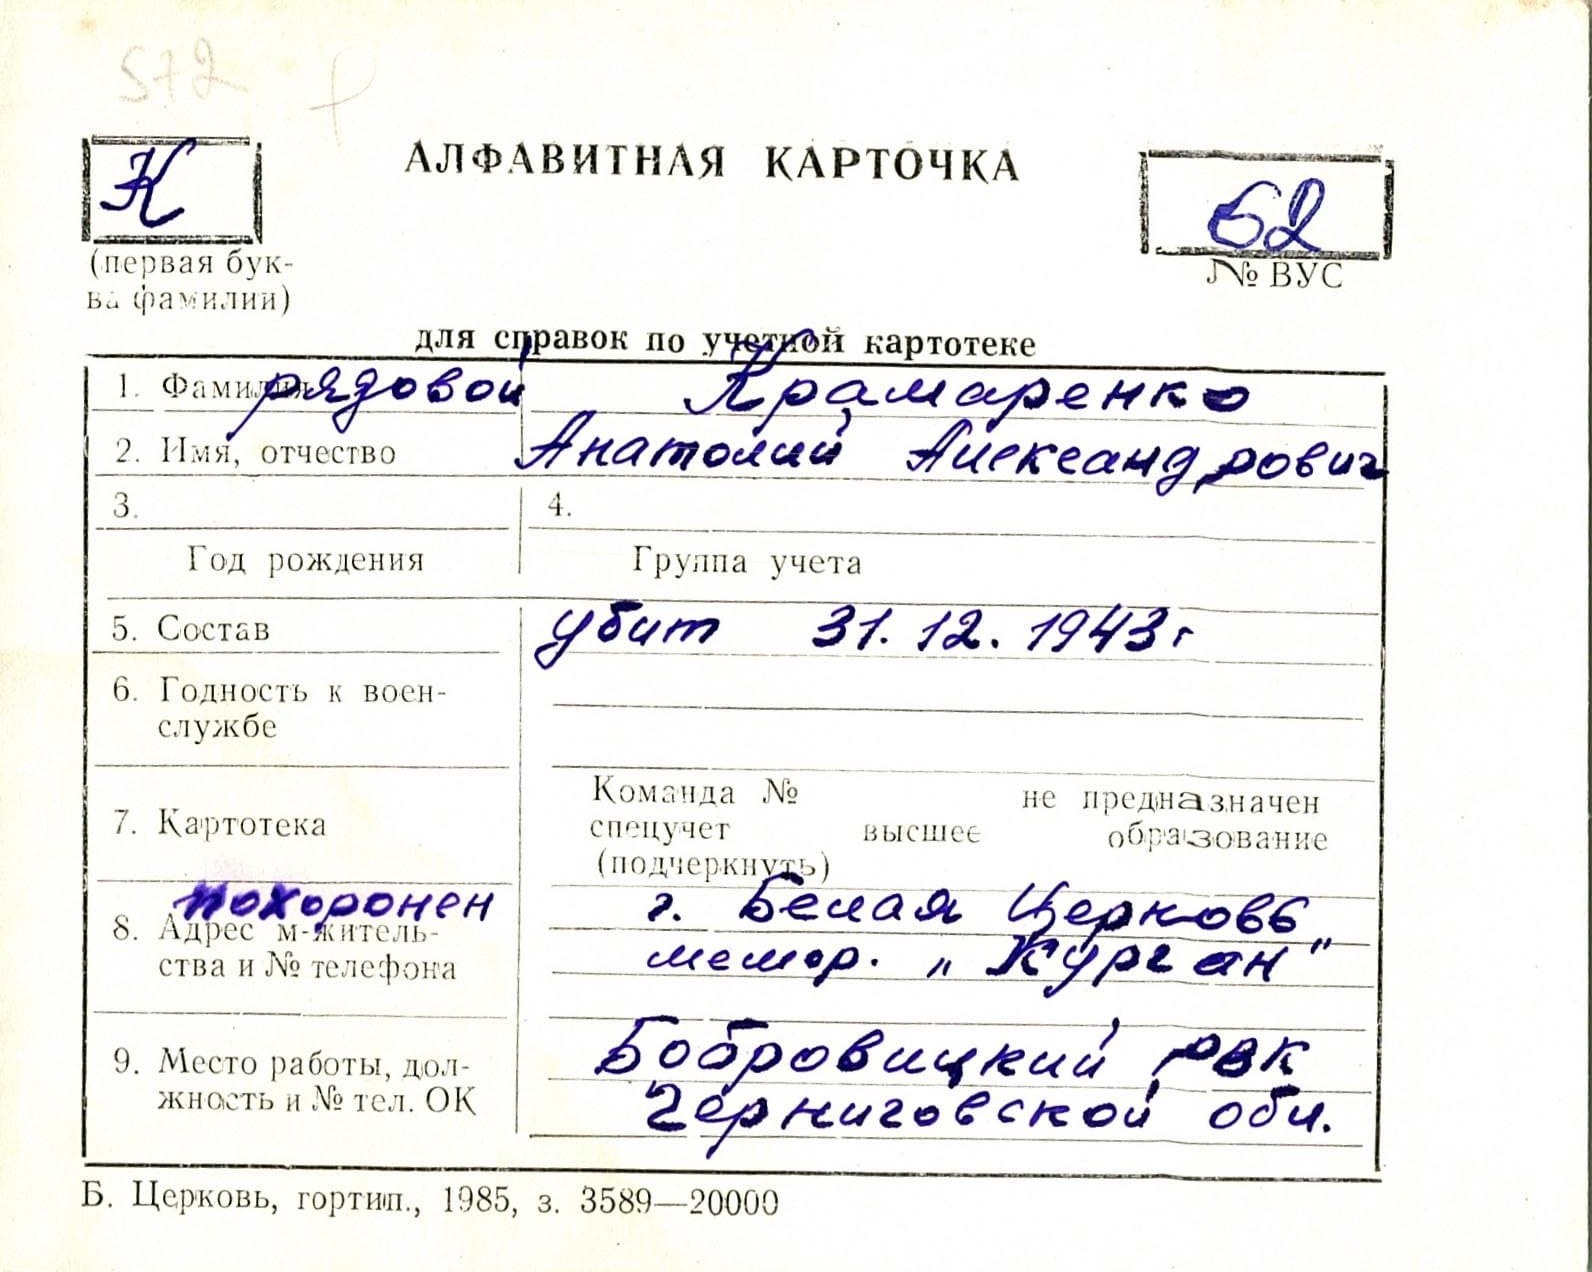 572
К
АЛФАВИТНАЯ КАРТОЧКА
62
(первая бук-
ва фамилии)
№ ВУС
для справок по учетной картотеке
1. Фамилия рядовой Крамаренко
2. Имя, отчество Анатолий Александрович
3. 4.
Год рождения Группа учета
5. Состав убит 31.12.1943г
6. Годность к воен-
службе
Команда № не предназначен
7. Картотека спецучет высшее образование
(подчеркнуть)
похоронен г. Белая Церковь
8. Адрес м-житель-
ства и № телефона мемор. „Курган"
9. Место работы, дол- Бобровицкий РВК
жность и № тел. ОК Черниговской обл.
Б. Церковь, гортип., 1985, з. 3589—20000